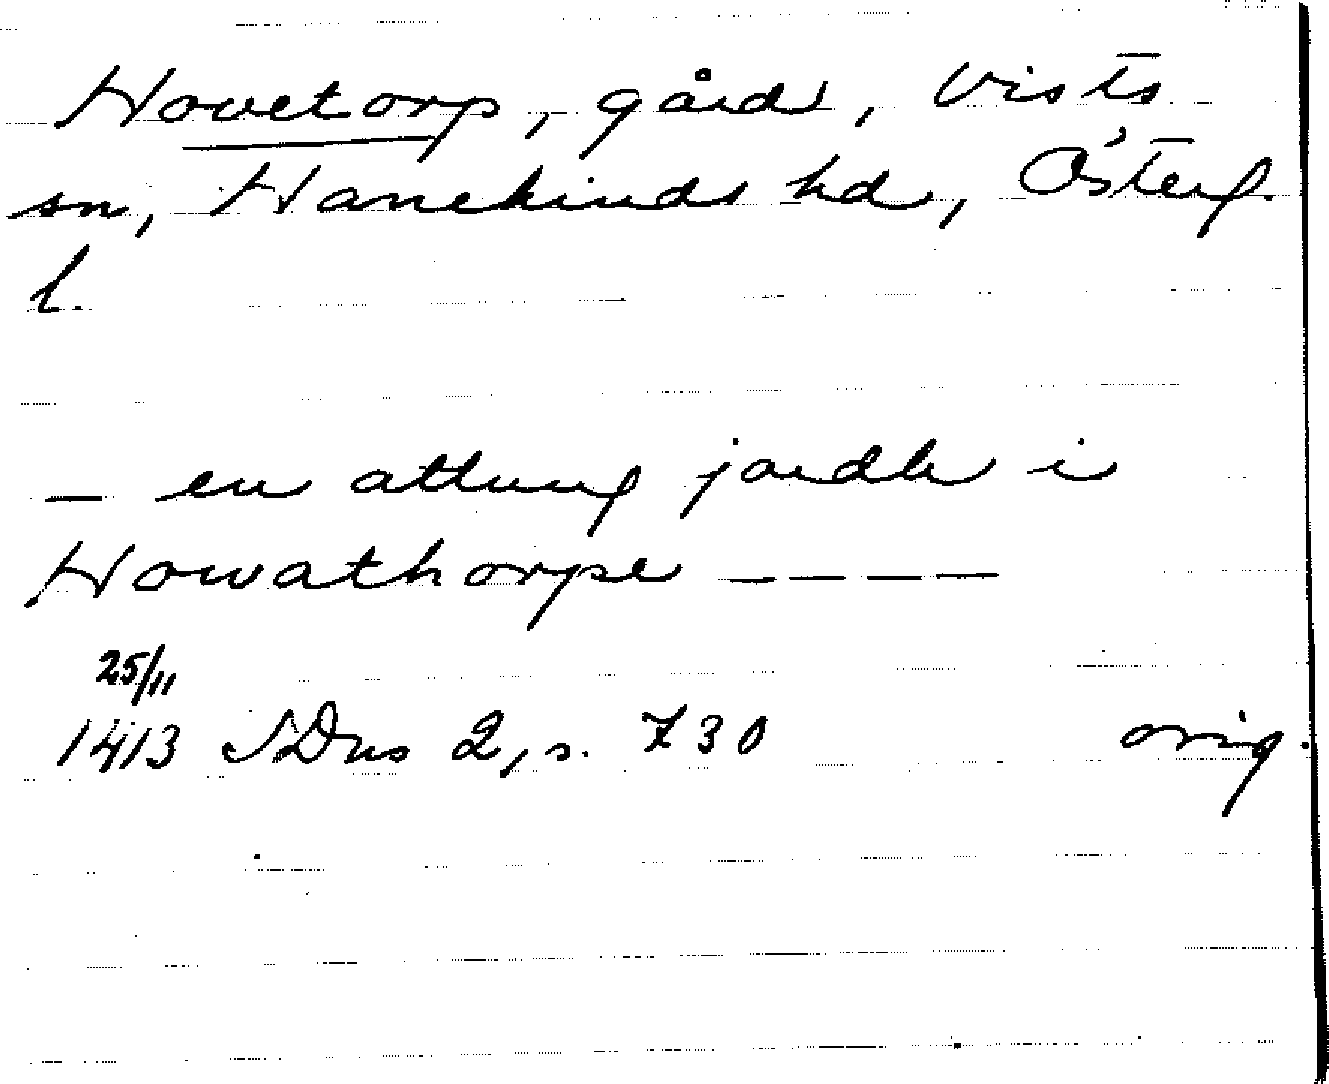 Hovetorp, gård, Vists
sn, Hanekinds hd, Österg.
l.
— en attung jardh i
Howathorpe — — — —
25/11
1413 SDns 2, s. 730 orig.